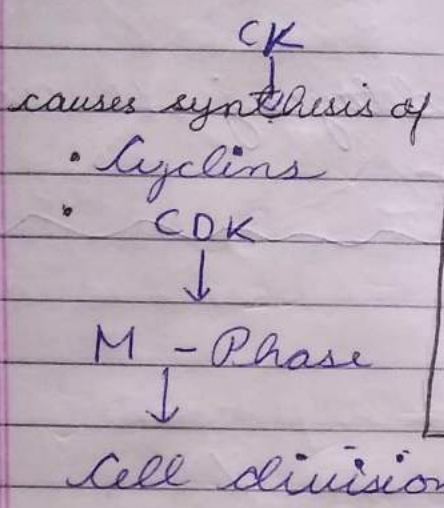 CK
↓
causes synthesis of
• Cyclins
• CDK
↓
M - Phase
↓
Cell division